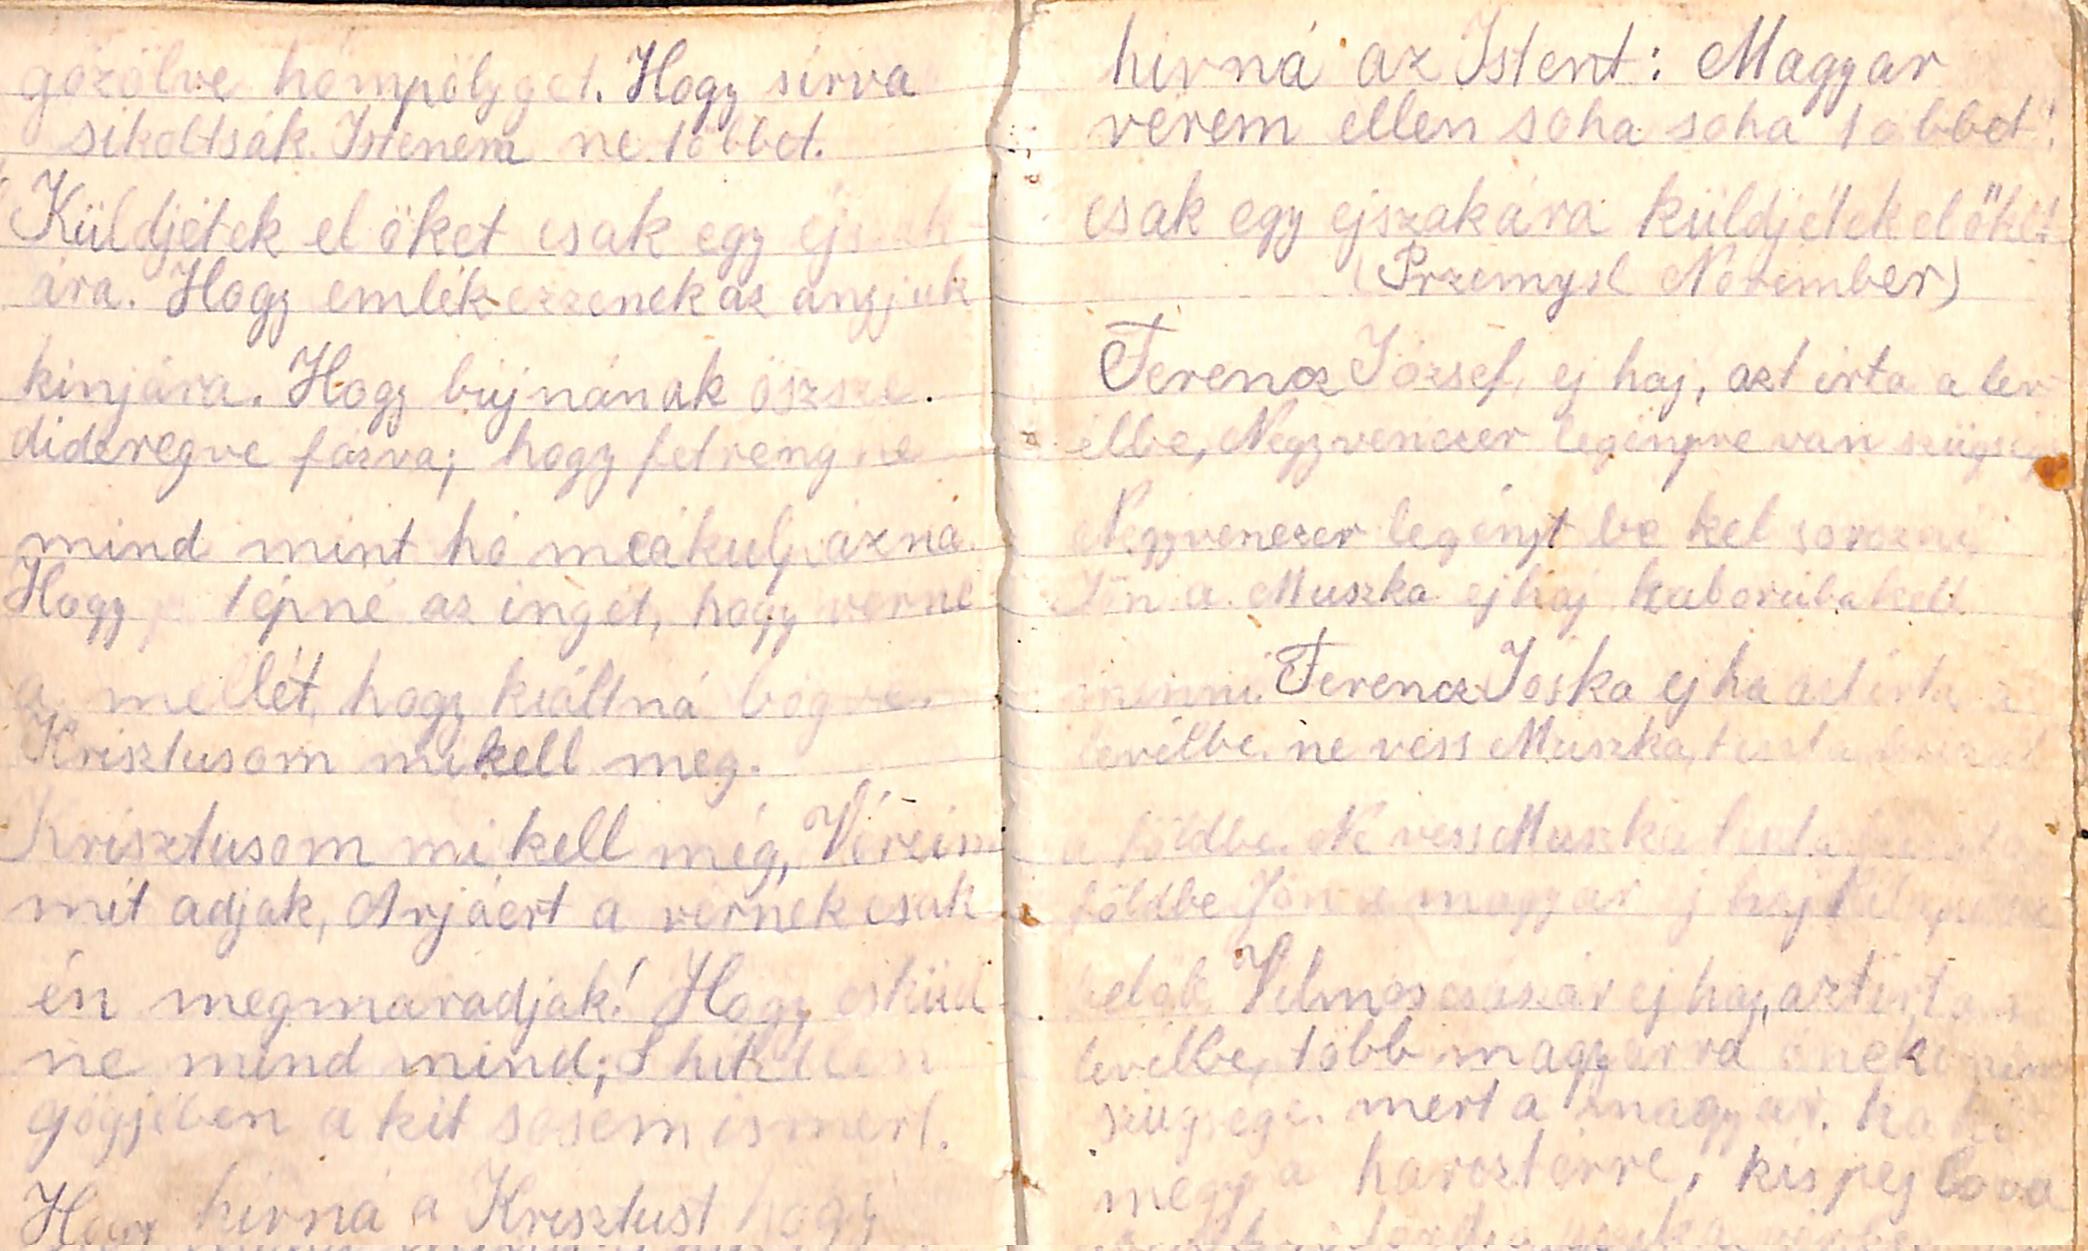 gőzölve hömpölyget. Hogy sírva
sikoltsák Istenem ne többet.
Küldjétek el őket csak egy éjszak-
ára. Hogy emlékezzenek az anyjuk
kinjára. Hogy bújnának öszsze.
dideregve fázva; hogy fetrengne
mind mint hó meákulpázna
Hogy tépné az ingét, hogy verné
a mellét, hogy kiáltná bőgve.
Krisztusom mikell meg.
Krisztusom mi kell még, Véreim
mit adjak, Arjáért a vérnek csak
én megmaradjak! Hogy esküd
ne mind mind; S hitetlen
gőgjében a kit sosem ismert.
Hogy hirná a Krisztust hogy
hirná az Istent: Magyar
vérem ellen soha soha többet!
csak egy ejszakára küldjétek el őket
(Przemysl November)
Ferencz József, ej haj, azt irta a lev
élbe, Negyvenezer legényre van szüksége
Negyvenezer legényt be kel sorozni
Jön a Muszka ej haj háborúba kell
menni. Ferencz Jóska ej ha azt irta a
levélbe. ne vess Muszka, tiszta búzát
a földbe. Ne vess Muszka tiszta búzát a
földbe Jön a magyar ej haj
belőle Vilmos császár ej haj, azt irta a
levélbe, több magyarra őneki nem
szügsége. mert a magyar. ha ki
megy a harcztérre, kis pej lova